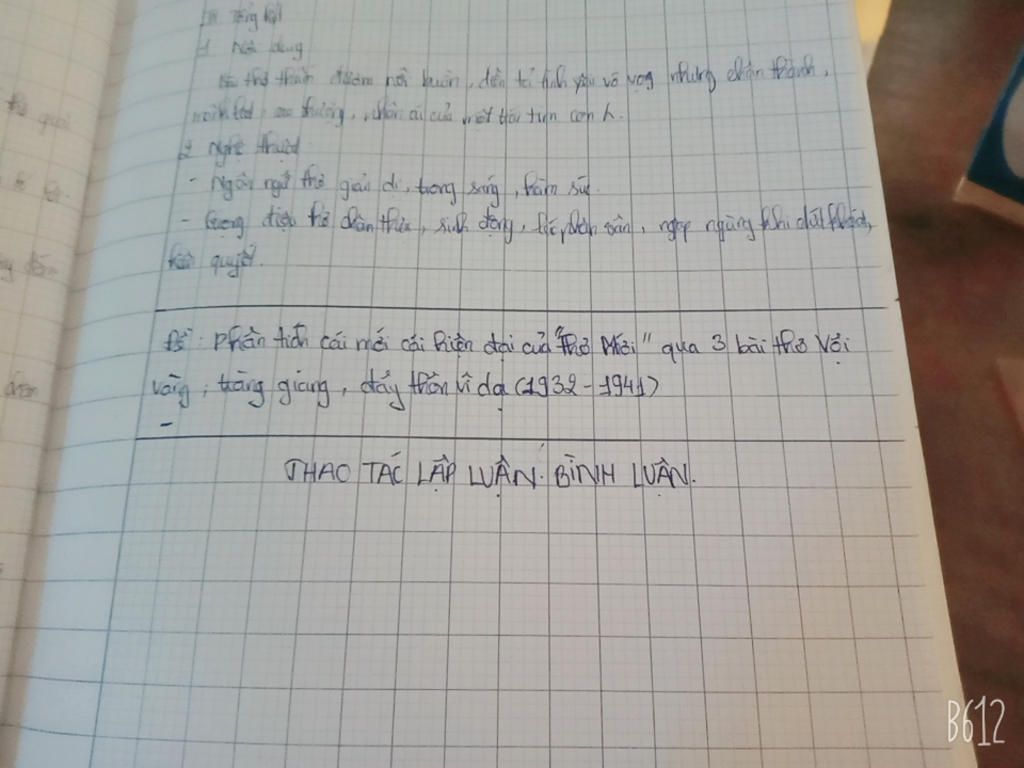 III Tổng kết
1 Nội dung
Bài thơ thấm đượm nỗi buồn, diễn tả tình yêu vô vọng nhưng chân thành,
mãnh liệt, cao thượng, nhân ái của một trái tim con h.
2 Nghệ thuật
- Ngôn ngữ thơ giản dị, trong sáng, hàm súc.
- Giọng điệu thơ chân thực, sinh động, lúc phân vân, ngập ngừng khi dứt khoát,
kiên quyết.
Đề: Phân tích cái mới cái hiện đại của "Thơ Mới" qua 3 bài thơ Vội
vàng, tràng giang, đây thôn vĩ dạ (1932 - 1941)
-
THAO TÁC LẬP LUẬN BÌNH LUẬN.
B612